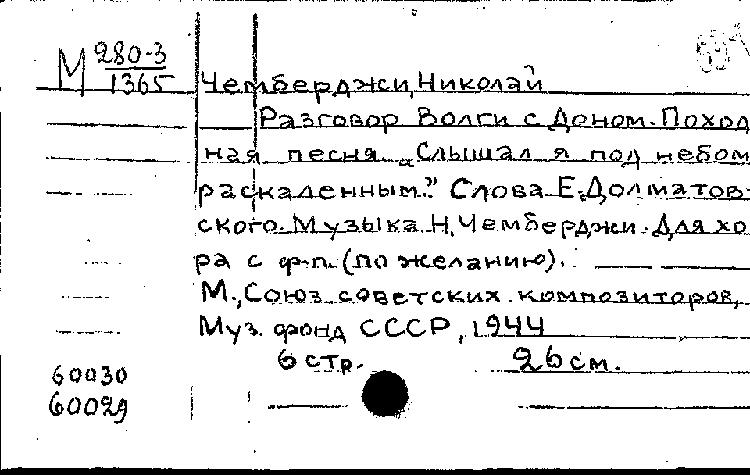 М 280-3
1365
Чемберджи, Николай
Разговор Волги с Доном. Поход
ная песня „Слышал я под небом
раскаленным". Слова Е. Долматов-
ского. Музыка Н. Чемберджи. Для хо
ра с ф-п. (по желанию).
М., Союз советских композиторов,
Муз. фонд СССР, 1944
6 стр. 26 см.
60030
60029